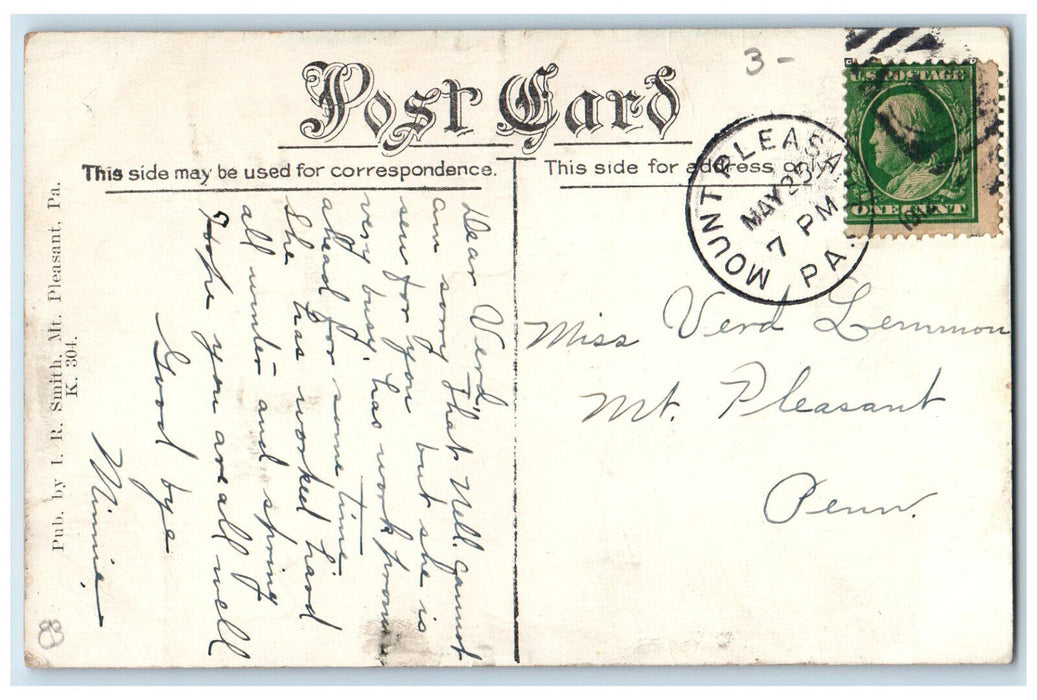 3-
Post Card
This side may be used for correspondence.
This side for address only.
U.S. POSTAGE
ONE CENT
MOUNT PLEASA
MAY 23
7 PM
PA.
Pub. by I. R. Smith, Mt. Pleasant, Pa.
K. 304.
Dear Verd,
am sorry that Nell. cannot
sew for you but she is
very busy, has work
ahead for some time
She has worked hard
all winter and spring
Hope you are all well
Good bye
Minnie
Miss Verd Lemmon
Mt. Pleasant
Penn.
83